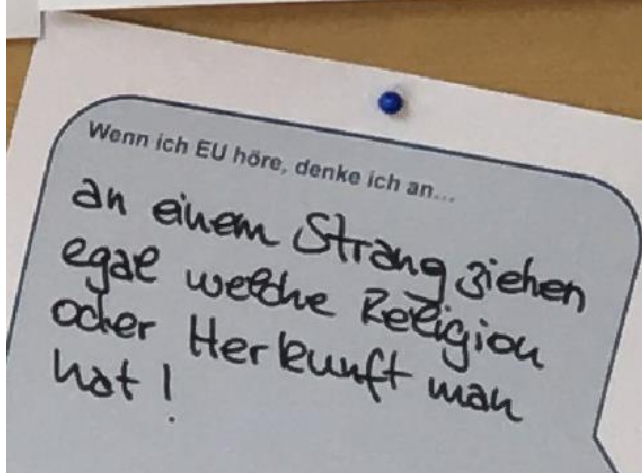 Wenn ich EU höre, denke ich an...
an einem Strang ziehen
egal welche Religion
oder Herkunft man
hat!